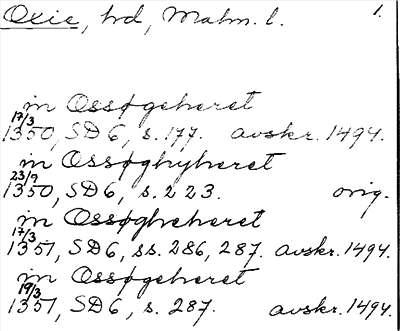 Oxie, hd, Malm. l. 1.
in Ossøgeheret
17/3
1350, SD 6, s. 177. avskr. 1494.
in Ossøghyheret
23/9
1350, SD 6, s. 223. orig.
in Ossøgheheret
17/3
1351, SD 6, ss. 286, 287. avskr. 1494.
in Ossøgeheret
19/3
1351, SD 6, s. 287. avskr. 1494.